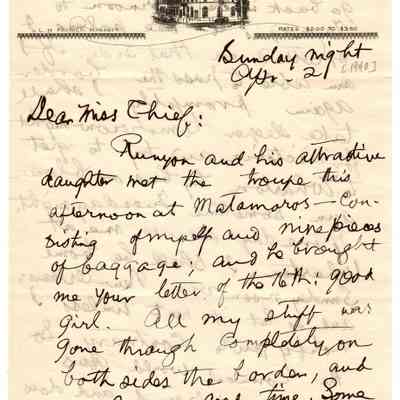 MANAGER
RATES $2.00 TO $3.50
Sunday night
Apr. 2
[1910]
Dear Miss Chief:
Runyon and his attractive
daughter met the troupe this
afternoon at Matamoros — Con-
sisting of myself and nine pieces
of baggage; and he brought
me your letter of the 16th: good
girl. All my stuff was
gone through completely on
both sides the border, and
time. Some